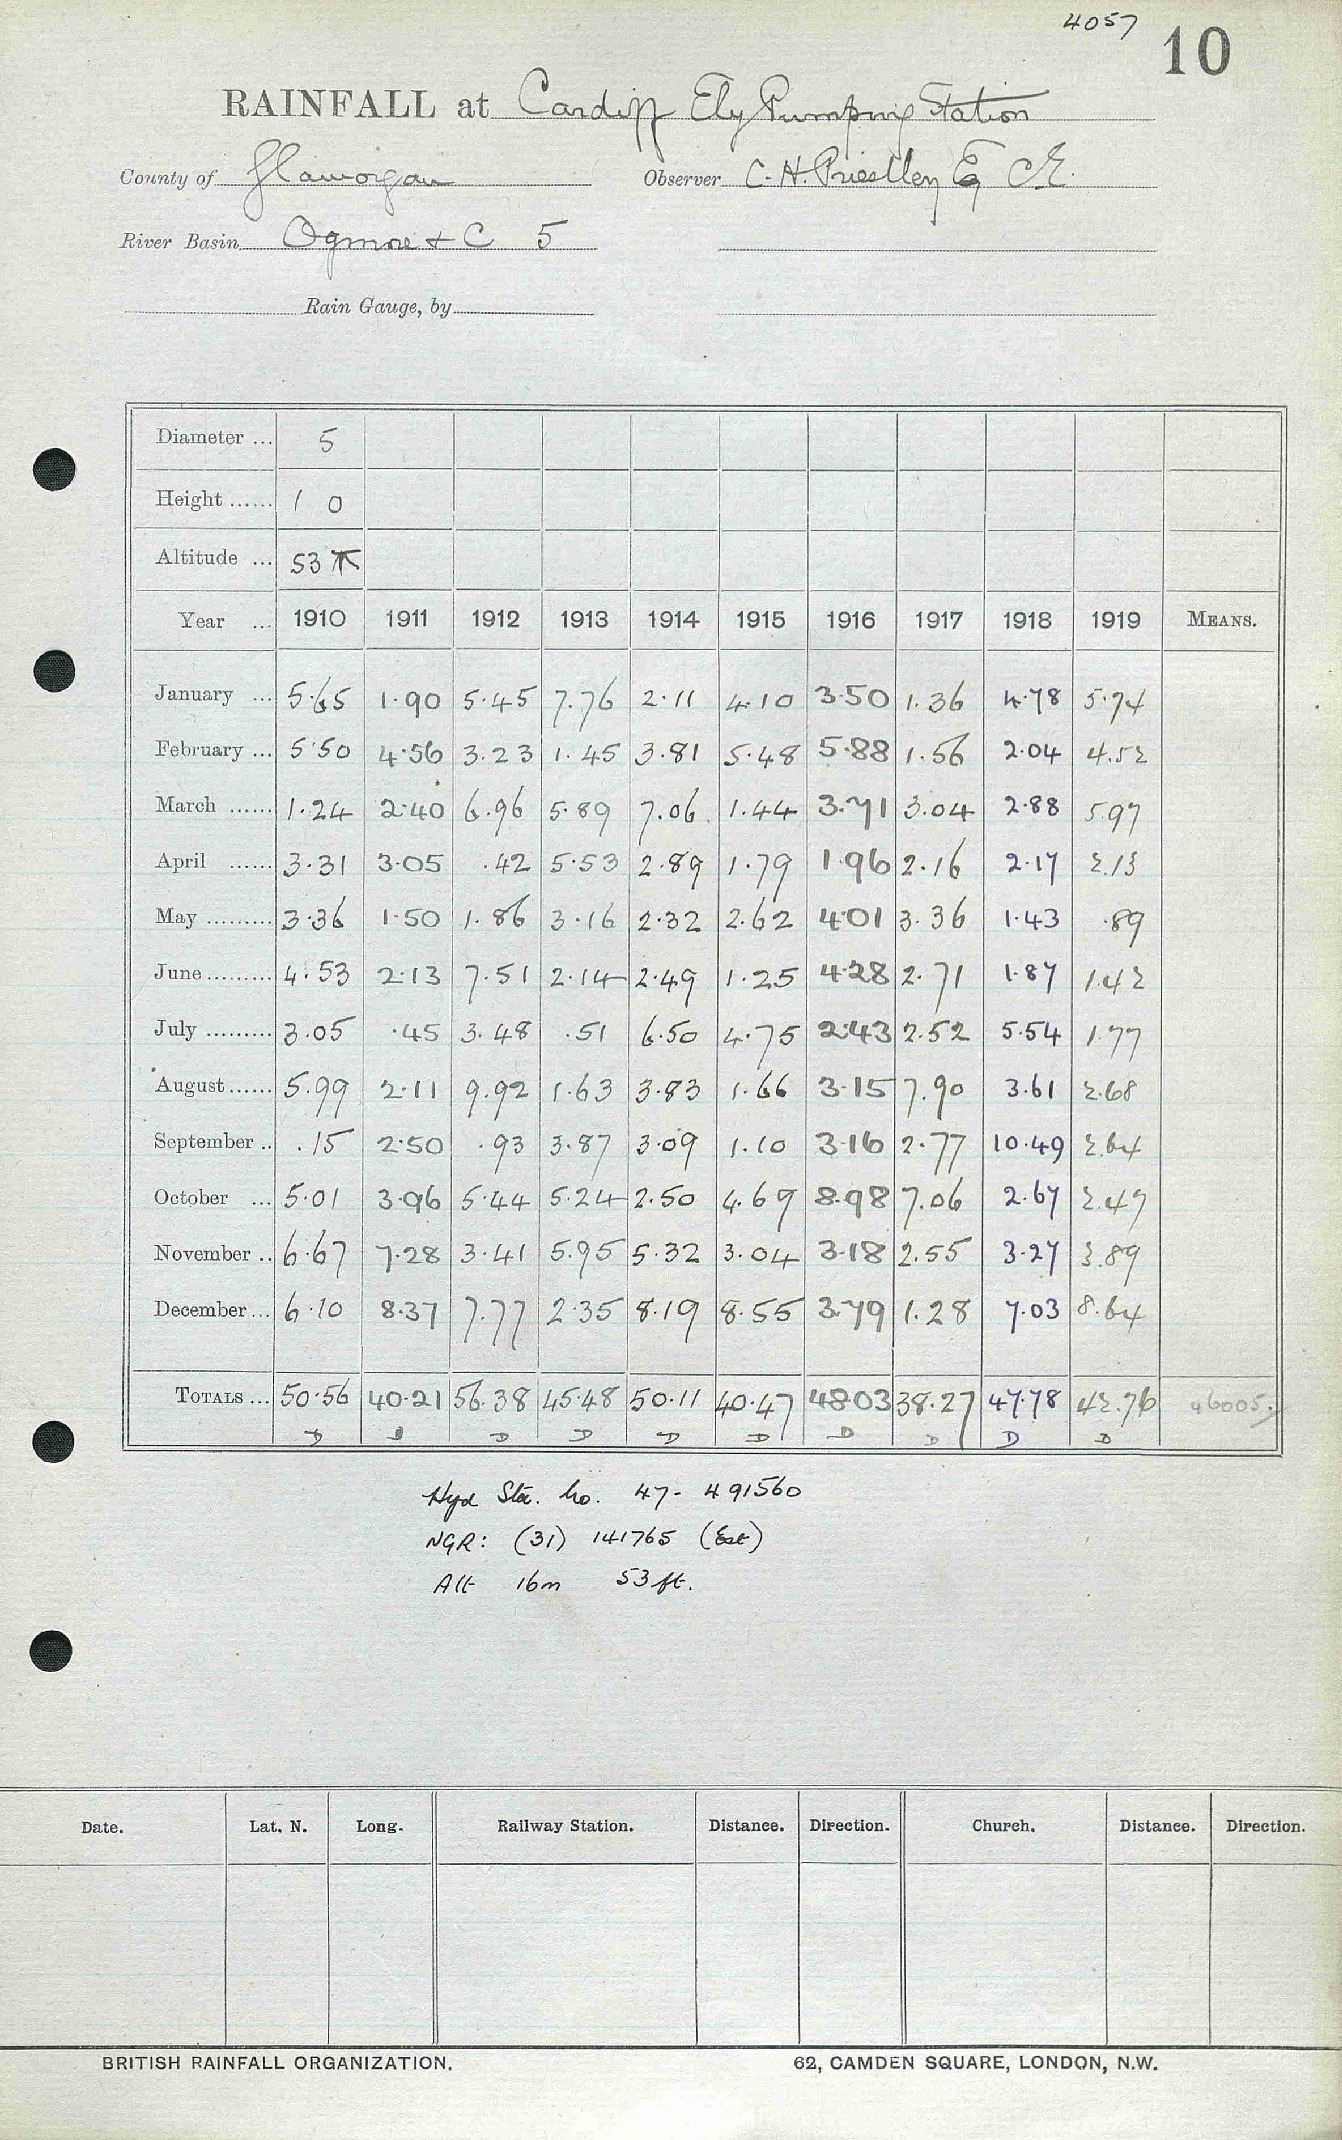 4057
10
RAINFALL at Cardiff Ely Pumping Station
County of Glamorgan Observer C. H. Priestley Esq CE.
River Basin Ogmore & C 5
Rain Gauge, by
Diameter ... 5
Height ...... 1 0
Altitude ... 53
Year ... 1910 1911 1912 1913 1914 1915 1916 1917 1918 1919 MEANS.
January ... 5.65 1.90 5.45 7.76 2.11 4.10 3.50 1.36 4.78 5.74
February ... 5.50 4.56 3.23 1.45 3.81 5.48 5.88 1.56 2.04 4.52
March ...... 1.24 2.40 6.96 5.89 7.06 1.44 3.71 3.04 2.88 5.97
April ...... 3.31 3.05 .42 5.53 2.89 1.79 1.96 2.16 2.17 2.13
May ......... 3.36 1.50 1.86 3.16 2.32 2.62 4.01 3.36 1.43 .89
June ......... 4.53 2.13 7.51 2.14 2.49 1.25 4.28 2.71 1.87 1.42
July ......... 3.05 .45 3.48 .51 6.50 4.75 2.43 2.52 5.54 1.77
August ...... 5.99 2.11 9.92 1.63 3.83 1.66 3.15 7.90 3.61 2.68
September .. .15 2.50 .93 3.87 3.09 1.10 3.16 2.77 10.49 2.64
October ... 5.01 3.96 5.44 5.24 2.50 4.69 8.98 7.06 2.67 2.47
November .. 6.67 7.28 3.41 5.95 5.32 3.04 3.18 2.55 3.27 3.89
December ... 6.10 8.37 7.77 2.35 8.19 8.55 3.79 1.28 7.03 8.64
TOTALS ... 50.56 40.21 56.38 45.48 50.11 40.47 48.03 38.27 47.78 42.76 46005
D D D D D D D D D D
Hyd Sta. No. 47- 491560
NGR: (31) 141765 (Est)
Alt 16m 53 ft.
Date. Lat. N. Long. Railway Station. Distance. Direction. Church. Distance. Direction.
BRITISH RAINFALL ORGANIZATION. 62, CAMDEN SQUARE, LONDON, N.W.